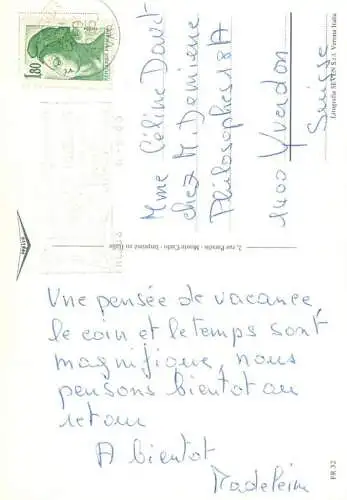 1,80
Mme Céline Davet
chez M. Demierre
Philosophes 18 A
1400 Yverdon
Suisse
Litografia SEVEN S.r.l. Verona Italia
2, rue Paradis - Monte-Carlo - Imprimé en Italie
Une pensée de vacance,
le coin et le temps sont
magnifique, nous
pensons bientot au
retour
A bientot
Madeleine
FR 32